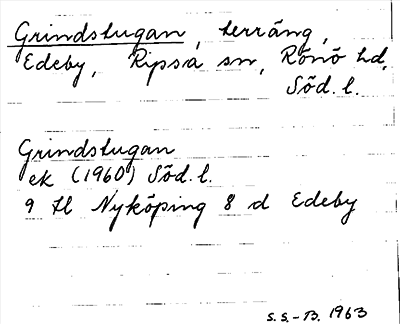 Grindstugan, terräng,
Edeby, Ripsa sn, Rönö hd,
Söd. l.
Grindstugan
ek (1960) Söd. l.
9 H Nyköping 8 d Edeby
S.S.-B. 1963